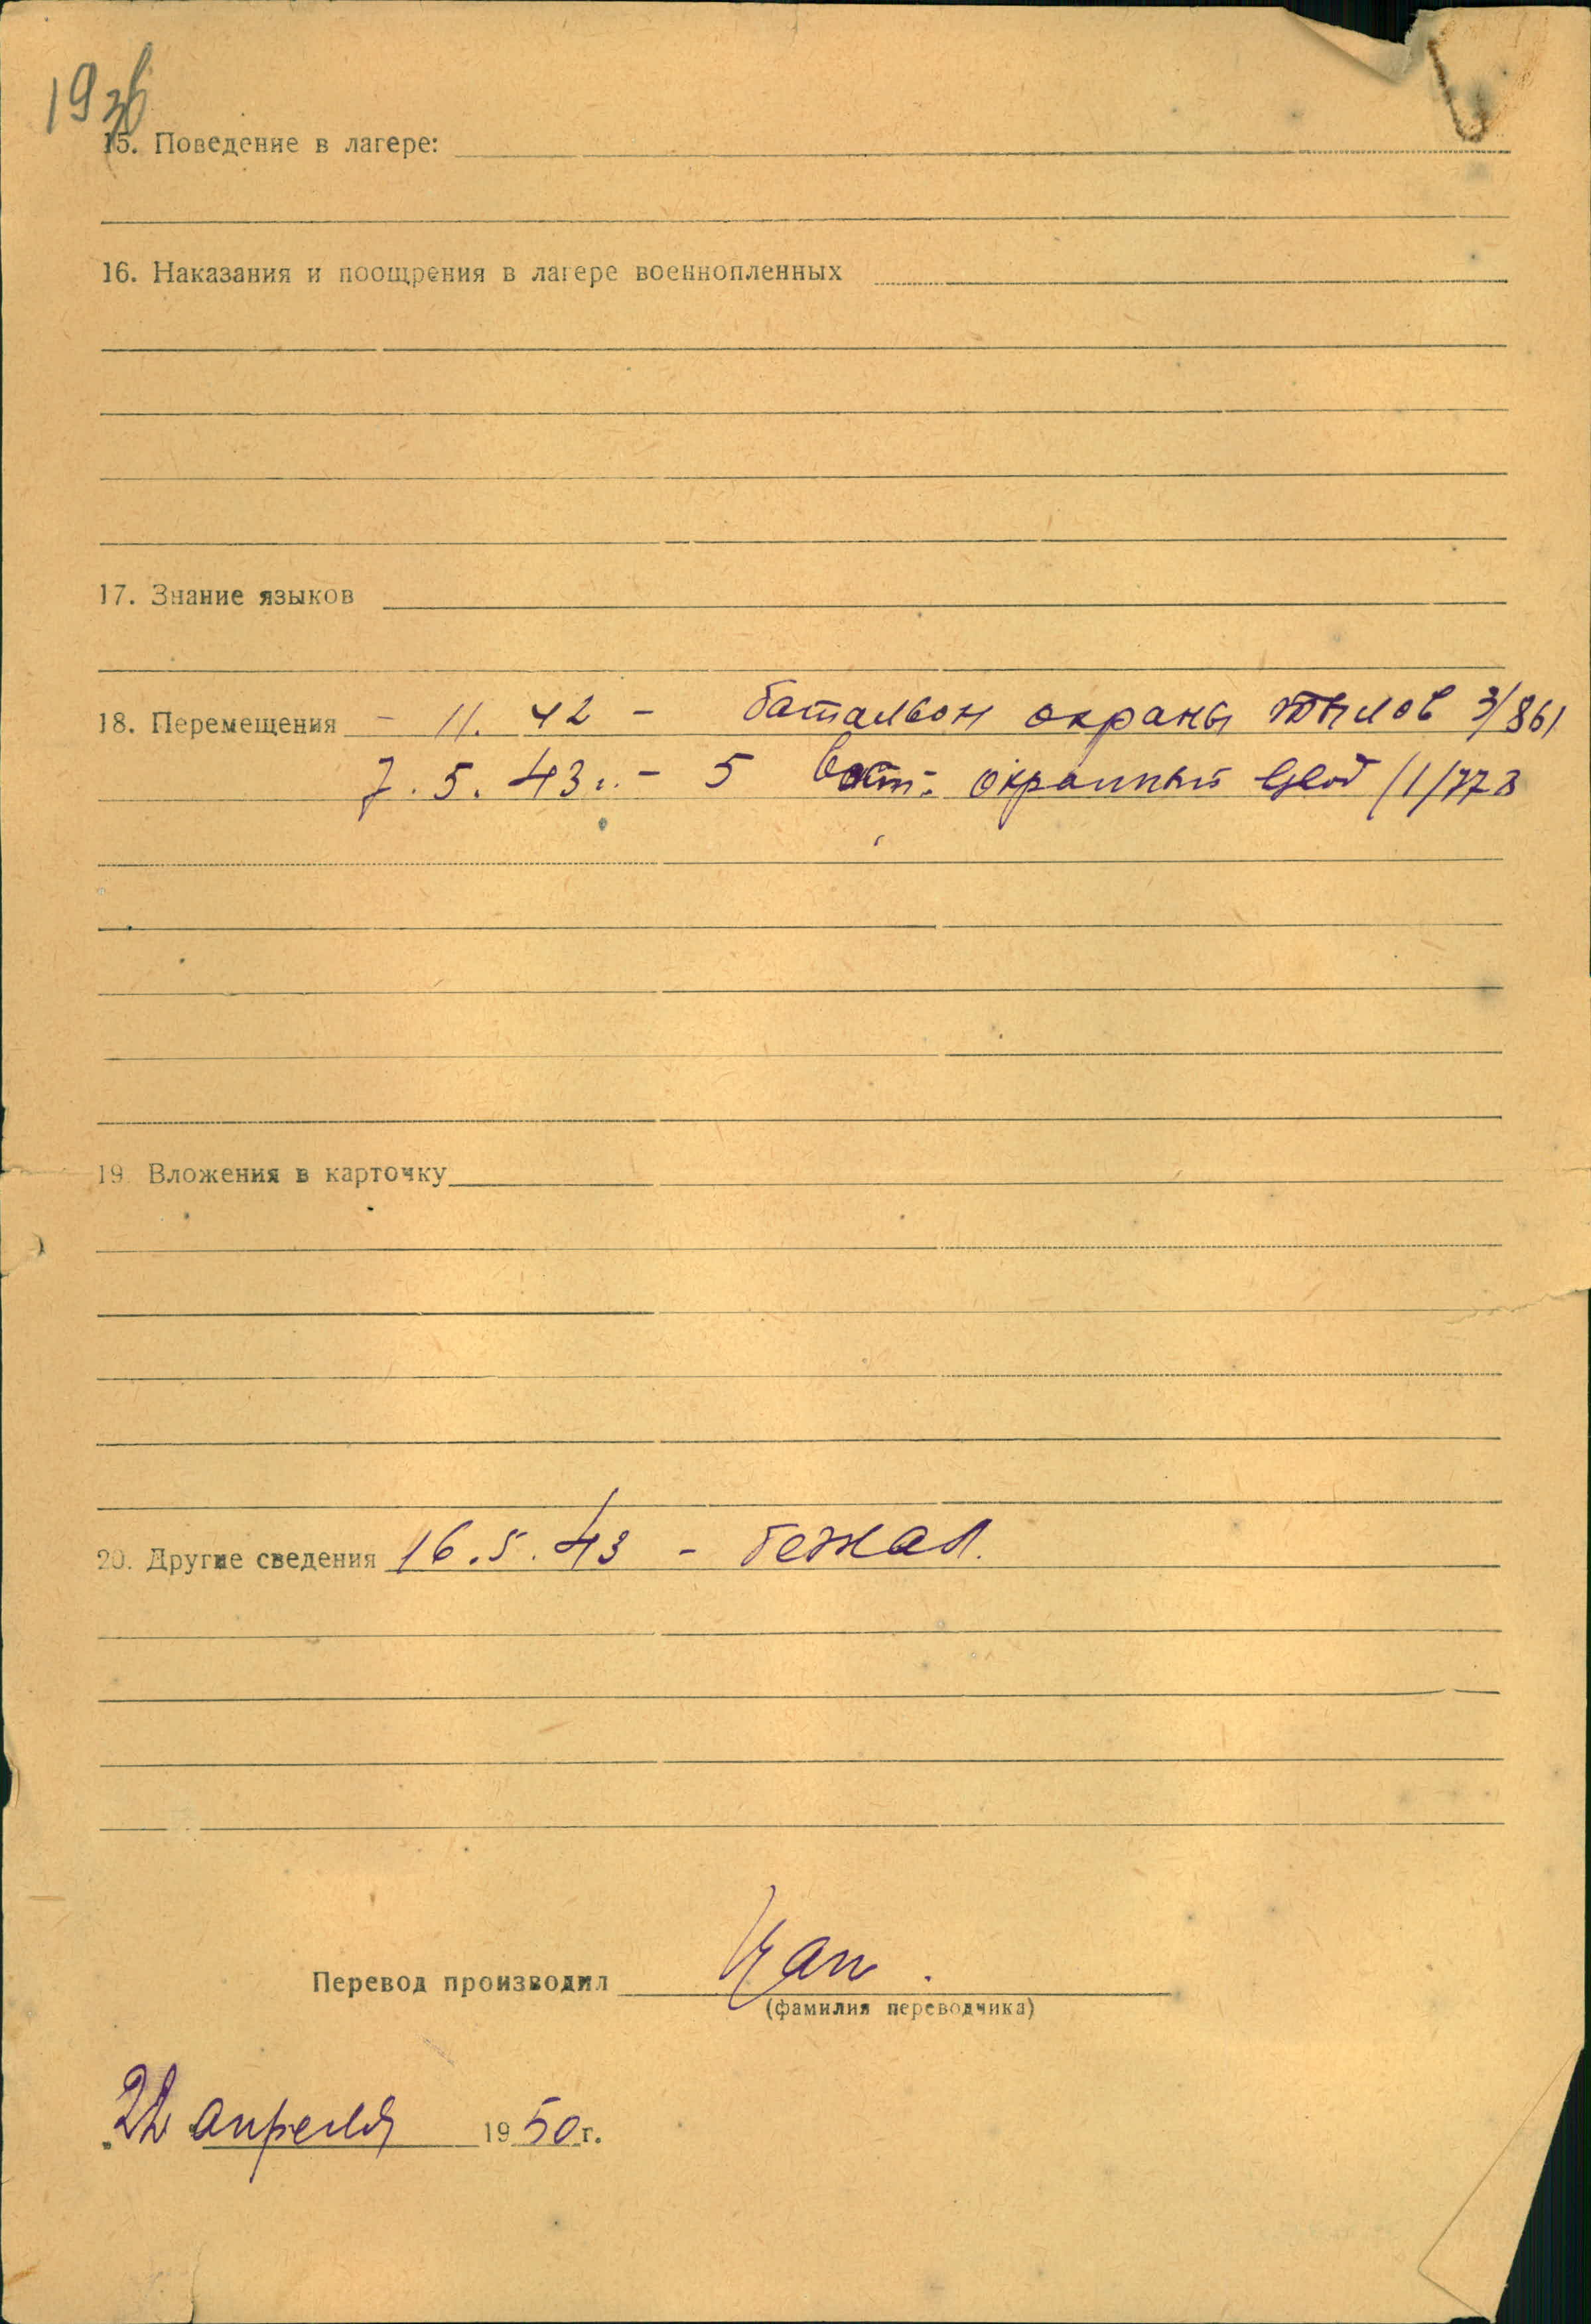 19
15. Поведение в лагере:
16. Наказания и поощрения в лагере военнопленных
17. Знание языков
18. Перемещения - 11. 42 - батальон охраны тылов 3/861
7. 5. 43г. - 5 вост. охранный взвод /1/773
19. Вложения в карточку
20. Другие сведения 16.5.43 - бежал.
Перевод производил
(фамилия переводчика)
22 апреля 1950г.